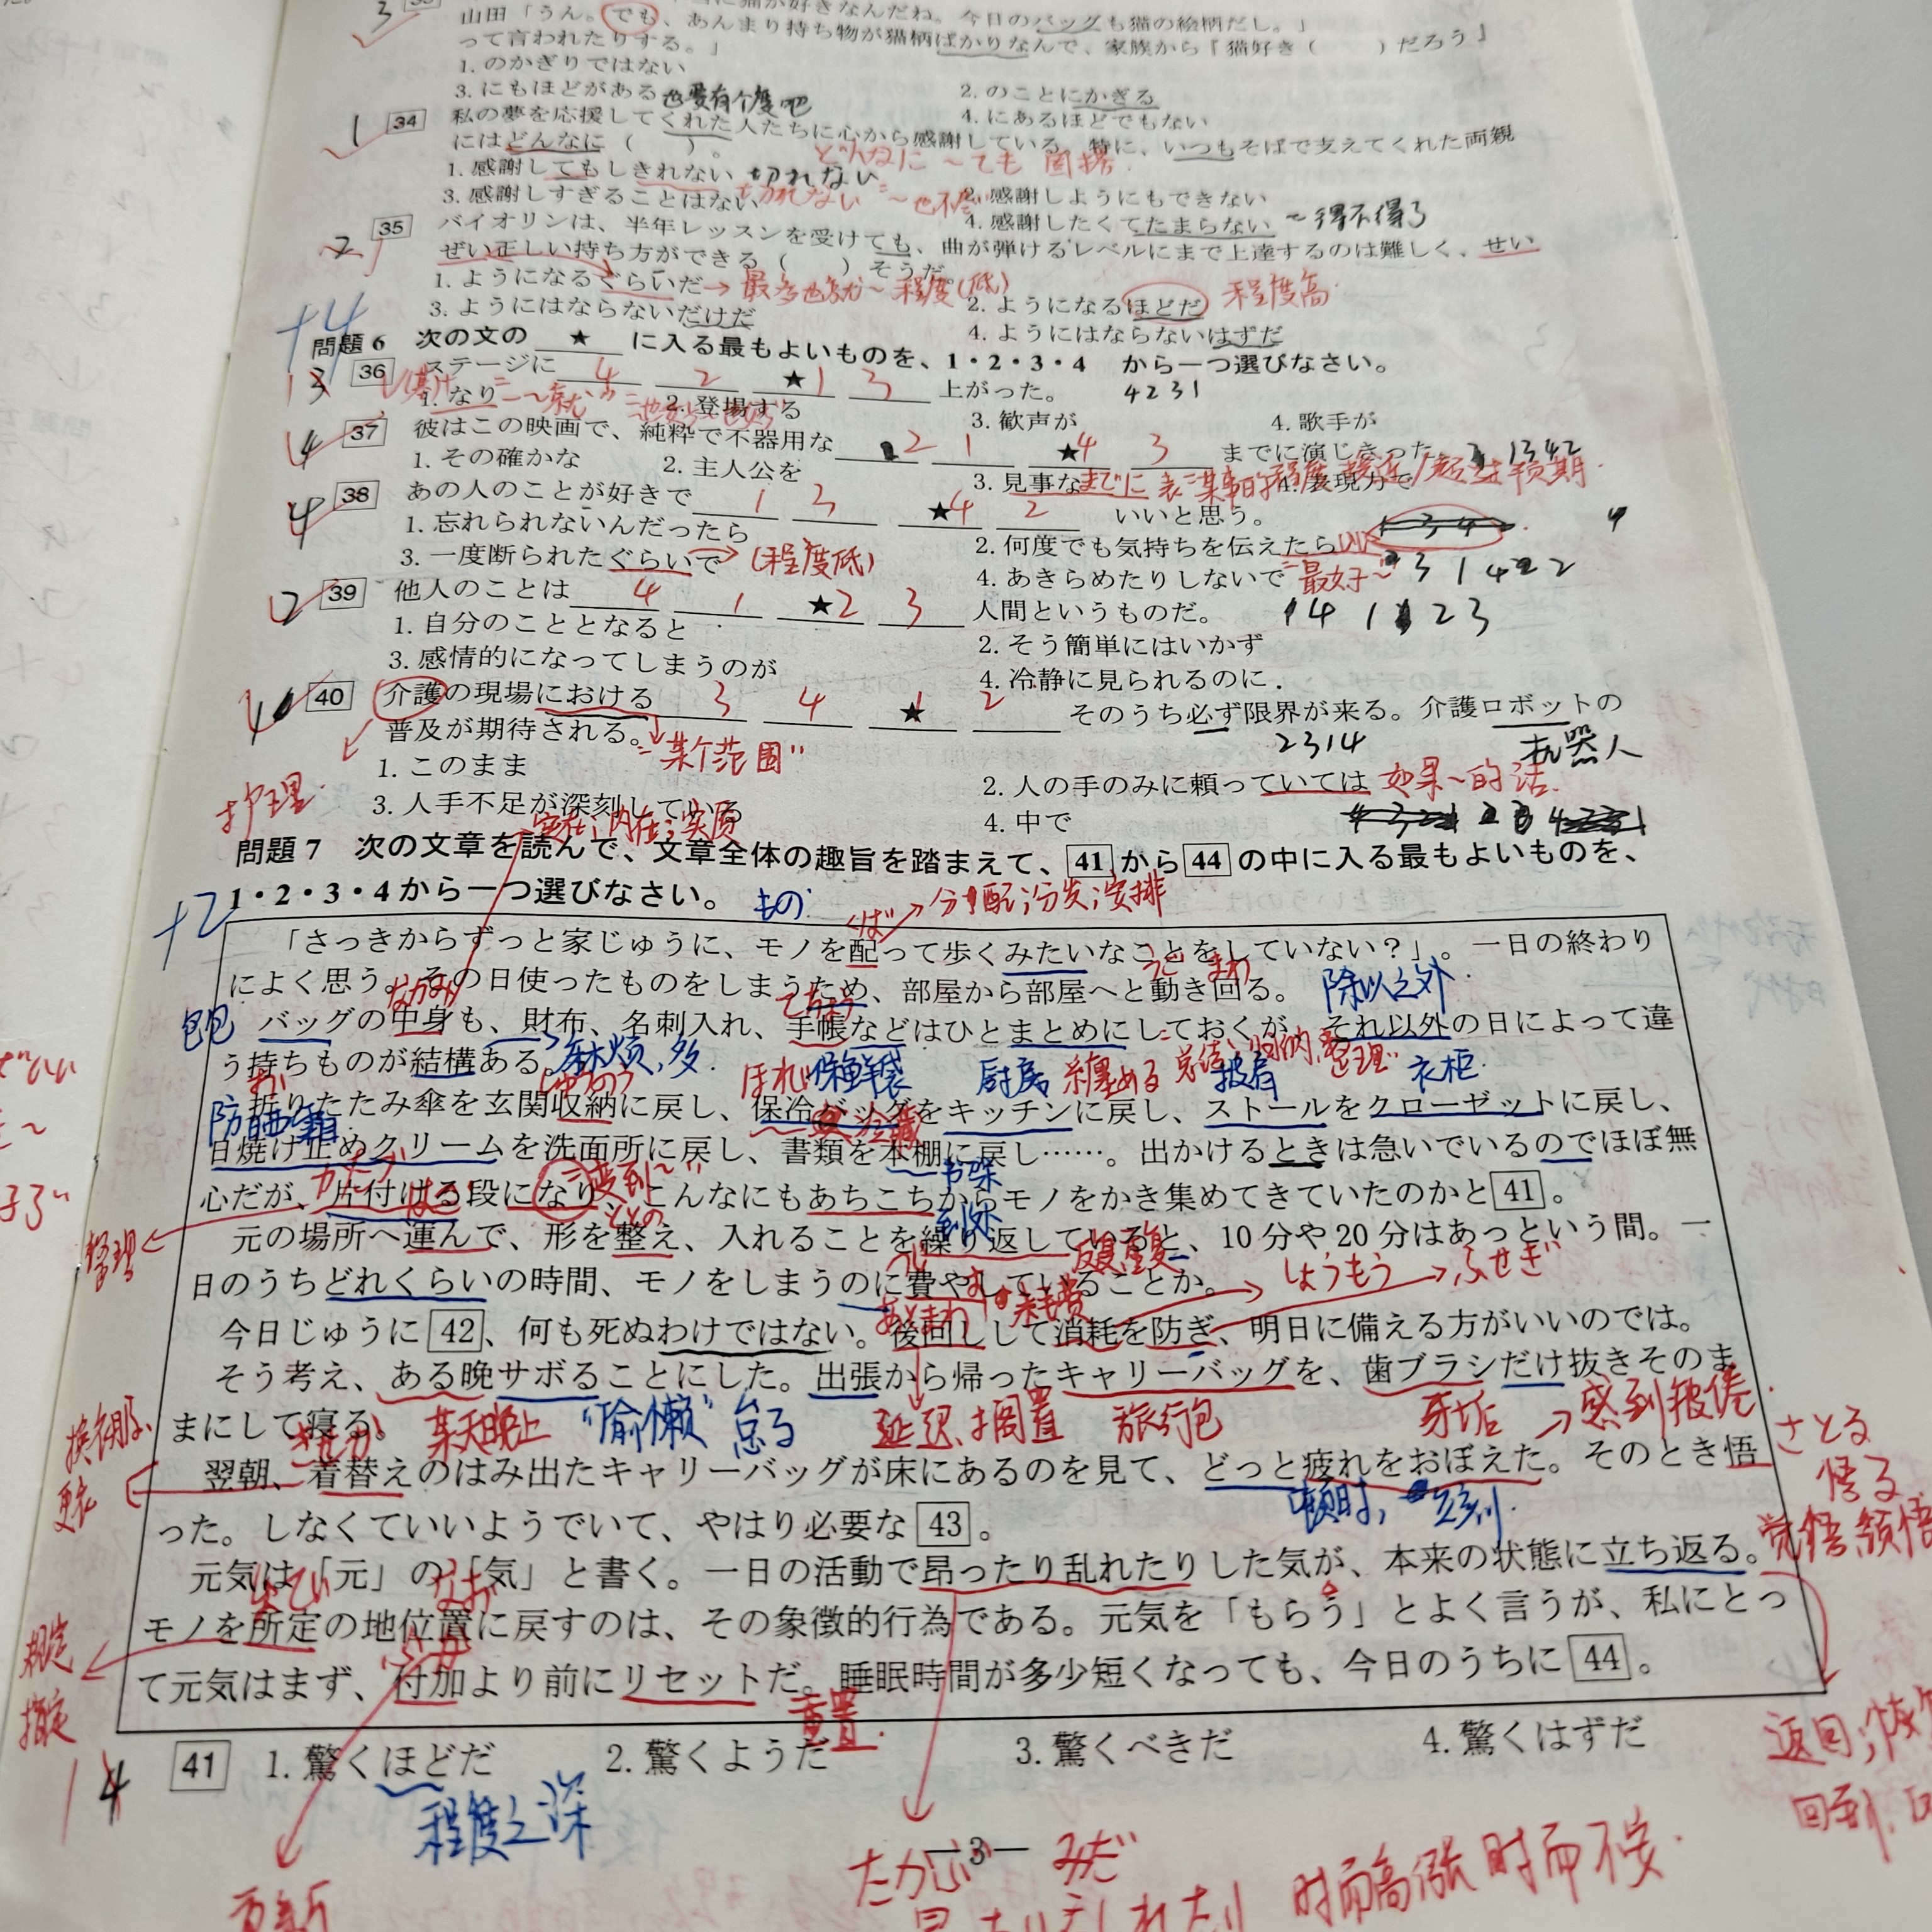 山田「うん。でも、あんまり持ち物が猫柄ばかりなんで、家族から『猫好き（　　）だろう』
って言われたりする。」
1. のかぎりではない
2. のことにかぎる
3. にもほどがある 也要有个度吧
4. にあるほどでもない
1 34 私の夢を応援してくれた人たちに心から感謝している。特に、いつもそばで支えてくれた両親
にはどんなに（　　）。
どんなに ～ても 固搭
1. 感謝してもしきれない 切れない
2. 感謝しようにもできない
3. 感謝しすぎることはない
4. 感謝したくてたまらない ～得不得了
2 35 バイオリンは、半年レッスンを受けても、曲が弾けるレベルにまで上達するのは難しく、せい
ぜい正しい持ち方ができる（　　）そうだ。
1. ようになるぐらいだ → 最多也就～程度(低)
2. ようになるほどだ 程度高
3. ようにはならないだけだ
4. ようにはならないはずだ
+4
問題6 次の文の ★ に入る最もよいものを、1・2・3・4 から一つ選びなさい。
36 ステージに 4 2 ★1 3 上がった。 4231
1. なり
2. 登場する
3. 歓声が
4. 歌手が
4 37 彼はこの映画で、純粋で不器用な 2 1 ★4 3 までに演じきった。 1342
1. その確かな
2. 主人公を
3. 見事な
4. 表現力で
4 38 あの人のことが好きで 1 3 ★4 2 いいと思う。
1. 忘れられないんだったら
2. 何度でも気持ちを伝えたら
3. 一度断られたぐらいで (程度低)
4. あきらめたりしないで "最好～"
2 39 他人のことは 4 1 ★2 3 人間というものだ。
1. 自分のこととなると
2. そう簡単にはいかず
3. 感情的になってしまうのが
4. 冷静に見られるのに.
40 介護の現場における 3 4 ★1 2 そのうち必ず限界が来る。介護ロボットの
普及が期待される。 "某个范围" 2314 机器人
护理
1. このまま
2. 人の手のみに頼っていては 如果～的话.
3. 人手不足が深刻している
4. 中で
実在；内在；实质
問題7 次の文章を読んで、文章全体の趣旨を踏まえて、41から44の中に入る最もよいものを、
1・2・3・4から一つ選びなさい。 もの
+2
くば → 分配；分发；安排
「さっきからずっと家じゅうに、モノを配って歩くみたいなことをしていない？」。一日の終わり
によく思う。その日使ったものをしまうため、部屋から部屋へと動き回る。 除以之外
なかみ てちょう うご まわ
包包 バッグの中身も、財布、名刺入れ、手帳などはひとまとめにしておくが、それ以外の日によって違
う持ちものが結構ある。 麻烦，多
ほれい 保鲜袋 厨房 纏める 总结，归纳，整理 披肩 衣柜
折りたたみ傘を玄関収納に戻し、保冷バッグをキッチンに戻し、ストールをクローゼットに戻し、
防晒霜
日焼け止めクリームを洗面所に戻し、書類を本棚に戻し……。出かけるときは急いでいるのでほぼ無
心だが、片付ける段になり、こんなにもあちこちからモノをかき集めてきていたのかと41。
整理 到处 ととの
元の場所へ運んで、形を整え、入れることを繰り返していると、10分や20分はあっという間。一
反复重复
日のうちどれくらいの時間、モノをしまうのに費やしていることか。
あとまわ 耗费 しょうもう → ふせぎ
今日じゅうに42、何も死ぬわけではない。後回しして消耗を防ぎ、明日に備える方がいいのでは。
そう考え、ある晩サボることにした。出張から帰ったキャリーバッグを、歯ブラシだけ抜きそのま
まにして寝る。 某天晚上 "偷懒" 怠る 延迟、搁置 旅行包 → 感到疲倦
翌朝、着替えのはみ出たキャリーバッグが床にあるのを見て、どっと疲れをおぼえた。そのとき悟
さとる 悟る 觉悟、领悟
换衣服、更衣
った。しなくていいようでいて、やはり必要な43。
顿时，立刻.
元気は「元」の「気」と書く。一日の活動で昂ったり乱れたりした気が、本来の状態に立ち返る。
モノを所定の地位置に戻すのは、その象徴的行為である。元気を「もらう」とよく言うが、私にとっ
规定 指定
て元気はまず、付加より前にリセットだ。睡眠時間が多少短くなっても、今日のうちに44。
重置.
41 1. 驚くほどだ 2. 驚くようだ 3. 驚くべきだ 4. 驚くはずだ
程度之深
返回；恢复
—3—
たかぶ みだ
时而高涨 时而不安.